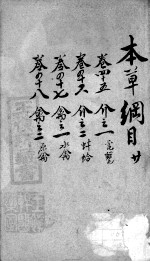 本草綱目 廿
巻四十五 介之一 亀鼈
巻四十六 介之二 蚌蛤
巻四十七 禽之一 水禽
巻四十八 禽之二 原禽